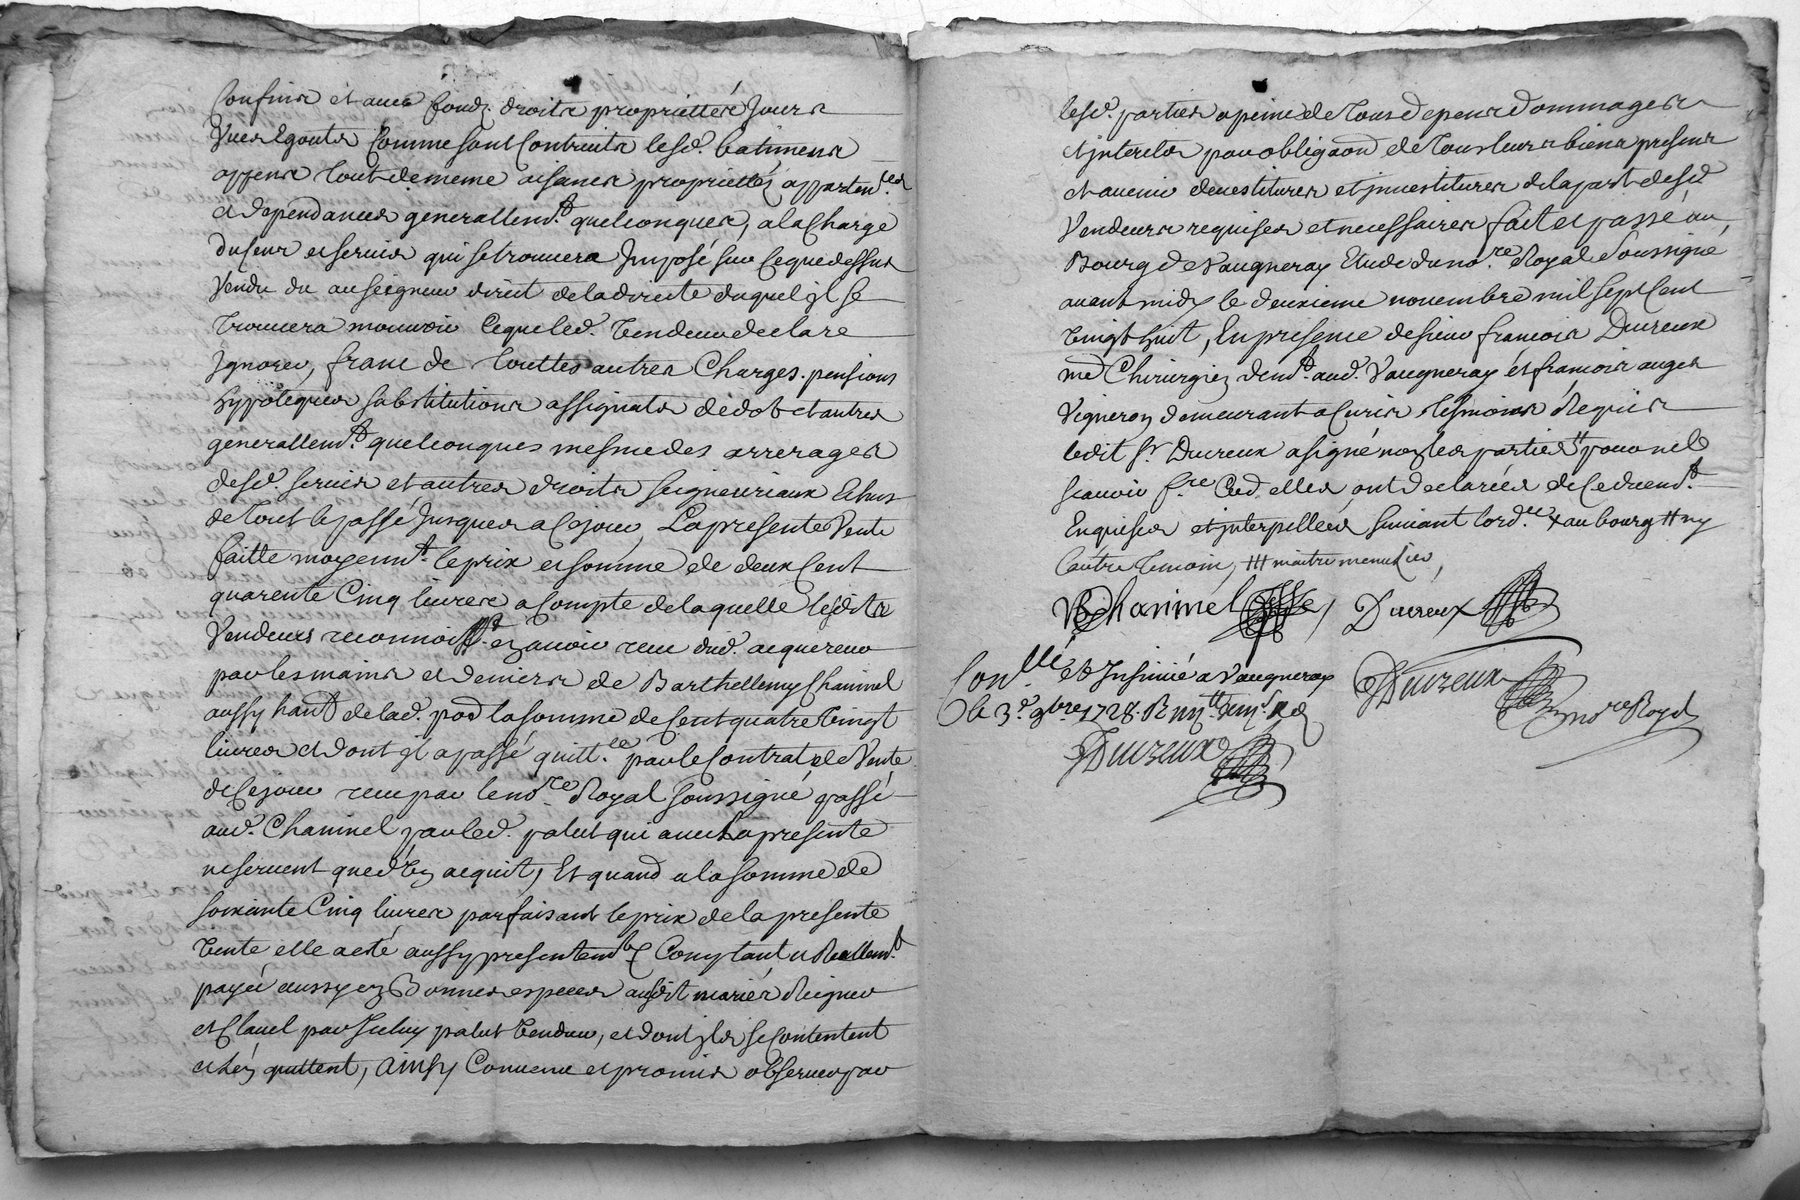 Confins et avec fondz droits propriettés Jours
Vues Egouts Comme sont Contruits lesd. batiments
appens tout de meme aisances propriettéz appartences
et dependances generallemt. quelconques, a la Charge
du Cens et servis qui se trouvera Imposé sur Ce que dessus
Vendu du au seigneur direct de la directe duquel jl se
trouvera mouvoir Ce que led. Vendeur declare
Jgnorer, franc de touttes autres Charges. pensions
hypoteques substitutions assignats de dot et autres
generallemt. quelconques mesme des arrerages
desd. servis et autres droits seigneuriaux Echus
de tout le passé Jusques a Ce jour, La presente Vente
faitte moyennt. le prix et somme de deux Cent
quarente Cinq livres a Compte de laquelle lesdits
Vendeurs reconnoisst. ez avoir reçu dud. acquereur
par les mains et deniers de Barthellemy Chaninel
aussy hant de lad. pad la somme de Cent quatre Vingt
livres et dont jl a passé quittce. par le Contrat de Vente
de Ce jour reçu par le nore. Royal soussigné passé
aud. Chaninel par led. palut qui avec la presente
ne servent que d'Un acquit, Et quand a la somme de
soixante Cinq livres parfaisant le prix de la presente
Vente elle a esté aussy presentemt. Comptant et Reallemt.
payée aussy ez Bonnes especes ausdit mariés Reigner
et Clavel par Jceluy palut Vendeur, et dont jls se Contentent
et l'en quittent, Ainsy Convenu et promis observer par
lesd. parties a peine de tous depens dommages
et jnterets par obligaon de tous leurs biens presens
et avenir devestitures et jnvestitures de la part desd.
Vendeurs requises et necessaires fait et passé au
Bourg de Vaugneray Etude du nore. Royal soussigné
avant midy le deuxieme novembre mil sept Cent
Vingt huit, En presence de sieur francois Ducreux
me Chirurgien demt. aud. Vaugneray et francois auger
Vigneron demeurant a Curis tesmoins Requis
ledit sr. Ducreux a signé non les parties # pour ne le
sçavoir fre. Ced. elles ont declarées de Ce duemt.
Enquises et jnterpellées suivant l'ordce. x au bourg # ny
l'autre temoin, ### maitre menusier,
B Chaninel Ducreux
Conllé et Insinué a Vaugneray
le 3e. 9bre 1728. R
Ducreux
Ducreux
nore Royal